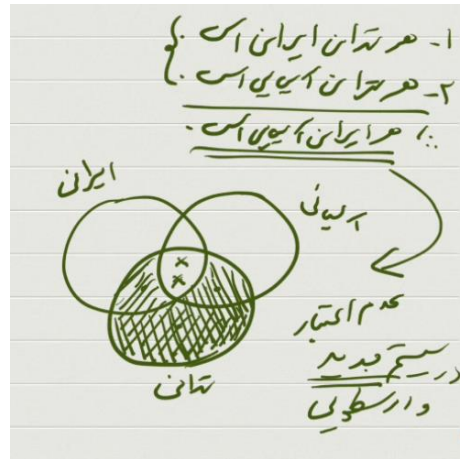 ۱- هر تهرانی ایرانی است.
۲- هر تهرانی آسیایی است.
∴ هر ایرانی آسیایی است.
ایرانی
آسیائی
عدم اعتبار
در سیستم جدید
و ارسطویی
تهرانی